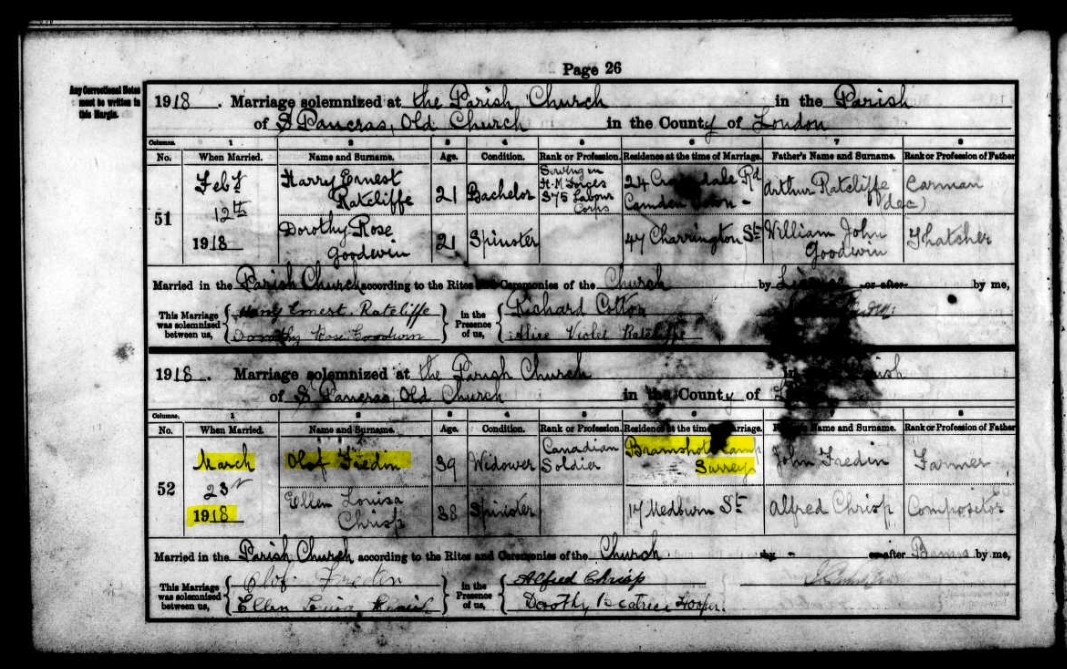 Page 26
Any Correctional Notes
must be written in
this Margin.
1918. Marriage solemnized at the Parish Church in the Parish
of St Pancras, Old Church in the County of London
Columns. 1 2 3 4 5 6 7 8
No. When Married. Name and Surname. Age. Condition. Rank or Profession. Residence at the time of Marriage. Father's Name and Surname. Rank or Profession of Father
51
Feby
12th
1918
Harry Ernest
Ratcliffe
21
Bachelor
Serving in
H.M. Forces
375 Labour
Corps
24
Rd
Camden Town
Arthur Ratcliffe
(dec)
Carman
Dorothy Rose
Goodwin
21
Spinster
47 Charrington St
William John
Goodwin
Thatcher
Married in the Parish Church according to the Rites and Ceremonies of the Church by or after by me,
This Marriage
was solemnized
between us,
Harry Ernest Ratcliffe
Dorothy Rose Goodwin
in the
Presence
of us,
Richard Cotton
Alice Violet Ratcliffe
1918. Marriage solemnized at the Parish Church in Parish
of St Pancras, Old Church in the County of
Columns. 1 2 3 4 5 6 8
No. When Married. Name and Surname. Age. Condition. Rank or Profession. Residence at the time Marriage. Name and Surname. Rank or Profession of Father
52
March
23r
1918
Olof Fredin
39
Widower
Canadian
Soldier
Bramshott Camp
Surrey
John Fredin
Farmer
Ellen Louisa
Chrisp
38
Spinster
17 Medburn St
Alfred Chrisp
Compositor
Married in the Parish Church according to the Rites and Ceremonies of the Church by or after Banns by me,
This Marriage
was solemnized
between us,
Olof Fredin
Ellen Louisa
in the
Presence
of us,
Alfred Chrisp
Dorothy Beatrice Hooper.